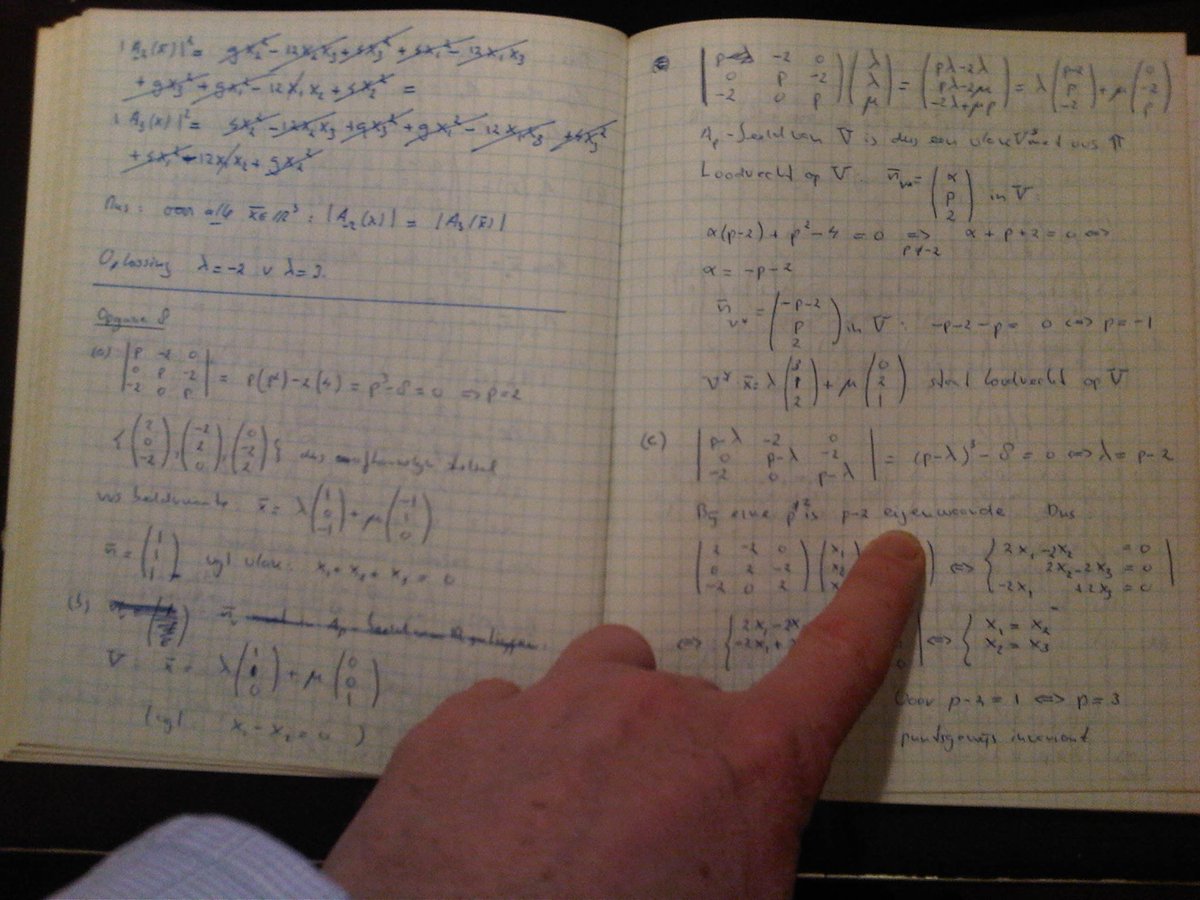 |A₂(x̄)|² = 9x₂² - 12x₂x₃ + 4x₃² + 4x₁² - 12x₁x₃
+ 9x₃² + 9x₁² - 12x₁x₂ + 4x₂² =
|A₃(x̄)|² = 4x₂² - 12x₂x₃ + 9x₃² + 9x₁² - 12x₁x₃ + 4x₃²
+ 4x₁² - 12x₁x₂ + 9x₂²
Dus: voor alle x̄ ∈ ℝ³: |A₂(x̄)| = |A₃(x̄)|
Oplossing λ = -2 ∨ λ = 3.
Opgave 8
(a) |p -2 0; 0 p -2; -2 0 p| = p(p²) - 2(4) = p³ - 8 = 0 ⇒ p = 2
{(2 0 -2), (-2 2 0), (0 -2 2)} dus stelsel
x̄ = λ(1 0 -1) + μ(-1 1 0)
n̄ = (1 1 1) vgl vlak: x₁ + x₂ + x₃ = 0
(b)
V: x̄ = λ(1 1 0) + μ(0 0 1)
(vgl x₁ - x₂ = 0)
|p -2 0; 0 p -2; -2 0 p|(λ λ μ) = (pλ-2λ pλ-2μ -2λ+μp) = λ(p-2 p -2) + μ(0 -2 p)
Aₚ-beeld van V is dus een vlak V* met
Loodrecht op V: n̄ᵥ* = (α p 2) in V:
α(p-2) + p² - 4 = 0 ⇔ p≠2 α + p + 2 = 0 ⇔
α = -p-2
n̄ᵥ* = (-p-2 p 2) in V: -p-2-p = 0 ⇔ p = -1
V* x̄ = λ(3 1 2) + μ(0 2 1) staat loodrecht op V
(c) |p-λ -2 0; 0 p-λ -2; -2 0 p-λ| = (p-λ)³ - 8 = 0 ⇔ λ = p-2
Bij elke p is p-2 eigenwaarde Dus
(2 -2 0; 0 2 -2; -2 0 2)(x₁ x₂ ⇔ {2x₁ - 2x₂ = 0 2x₂ - 2x₃ = 0 -2x₁ + 2x₃ = 0
⇔ {2x₁ - 2x -2x₁ + ⇔ {x₁ = x₂ x₂ = x₃
Voor p-2 = 1 ⇔ p = 3
puntsgewijs invariant